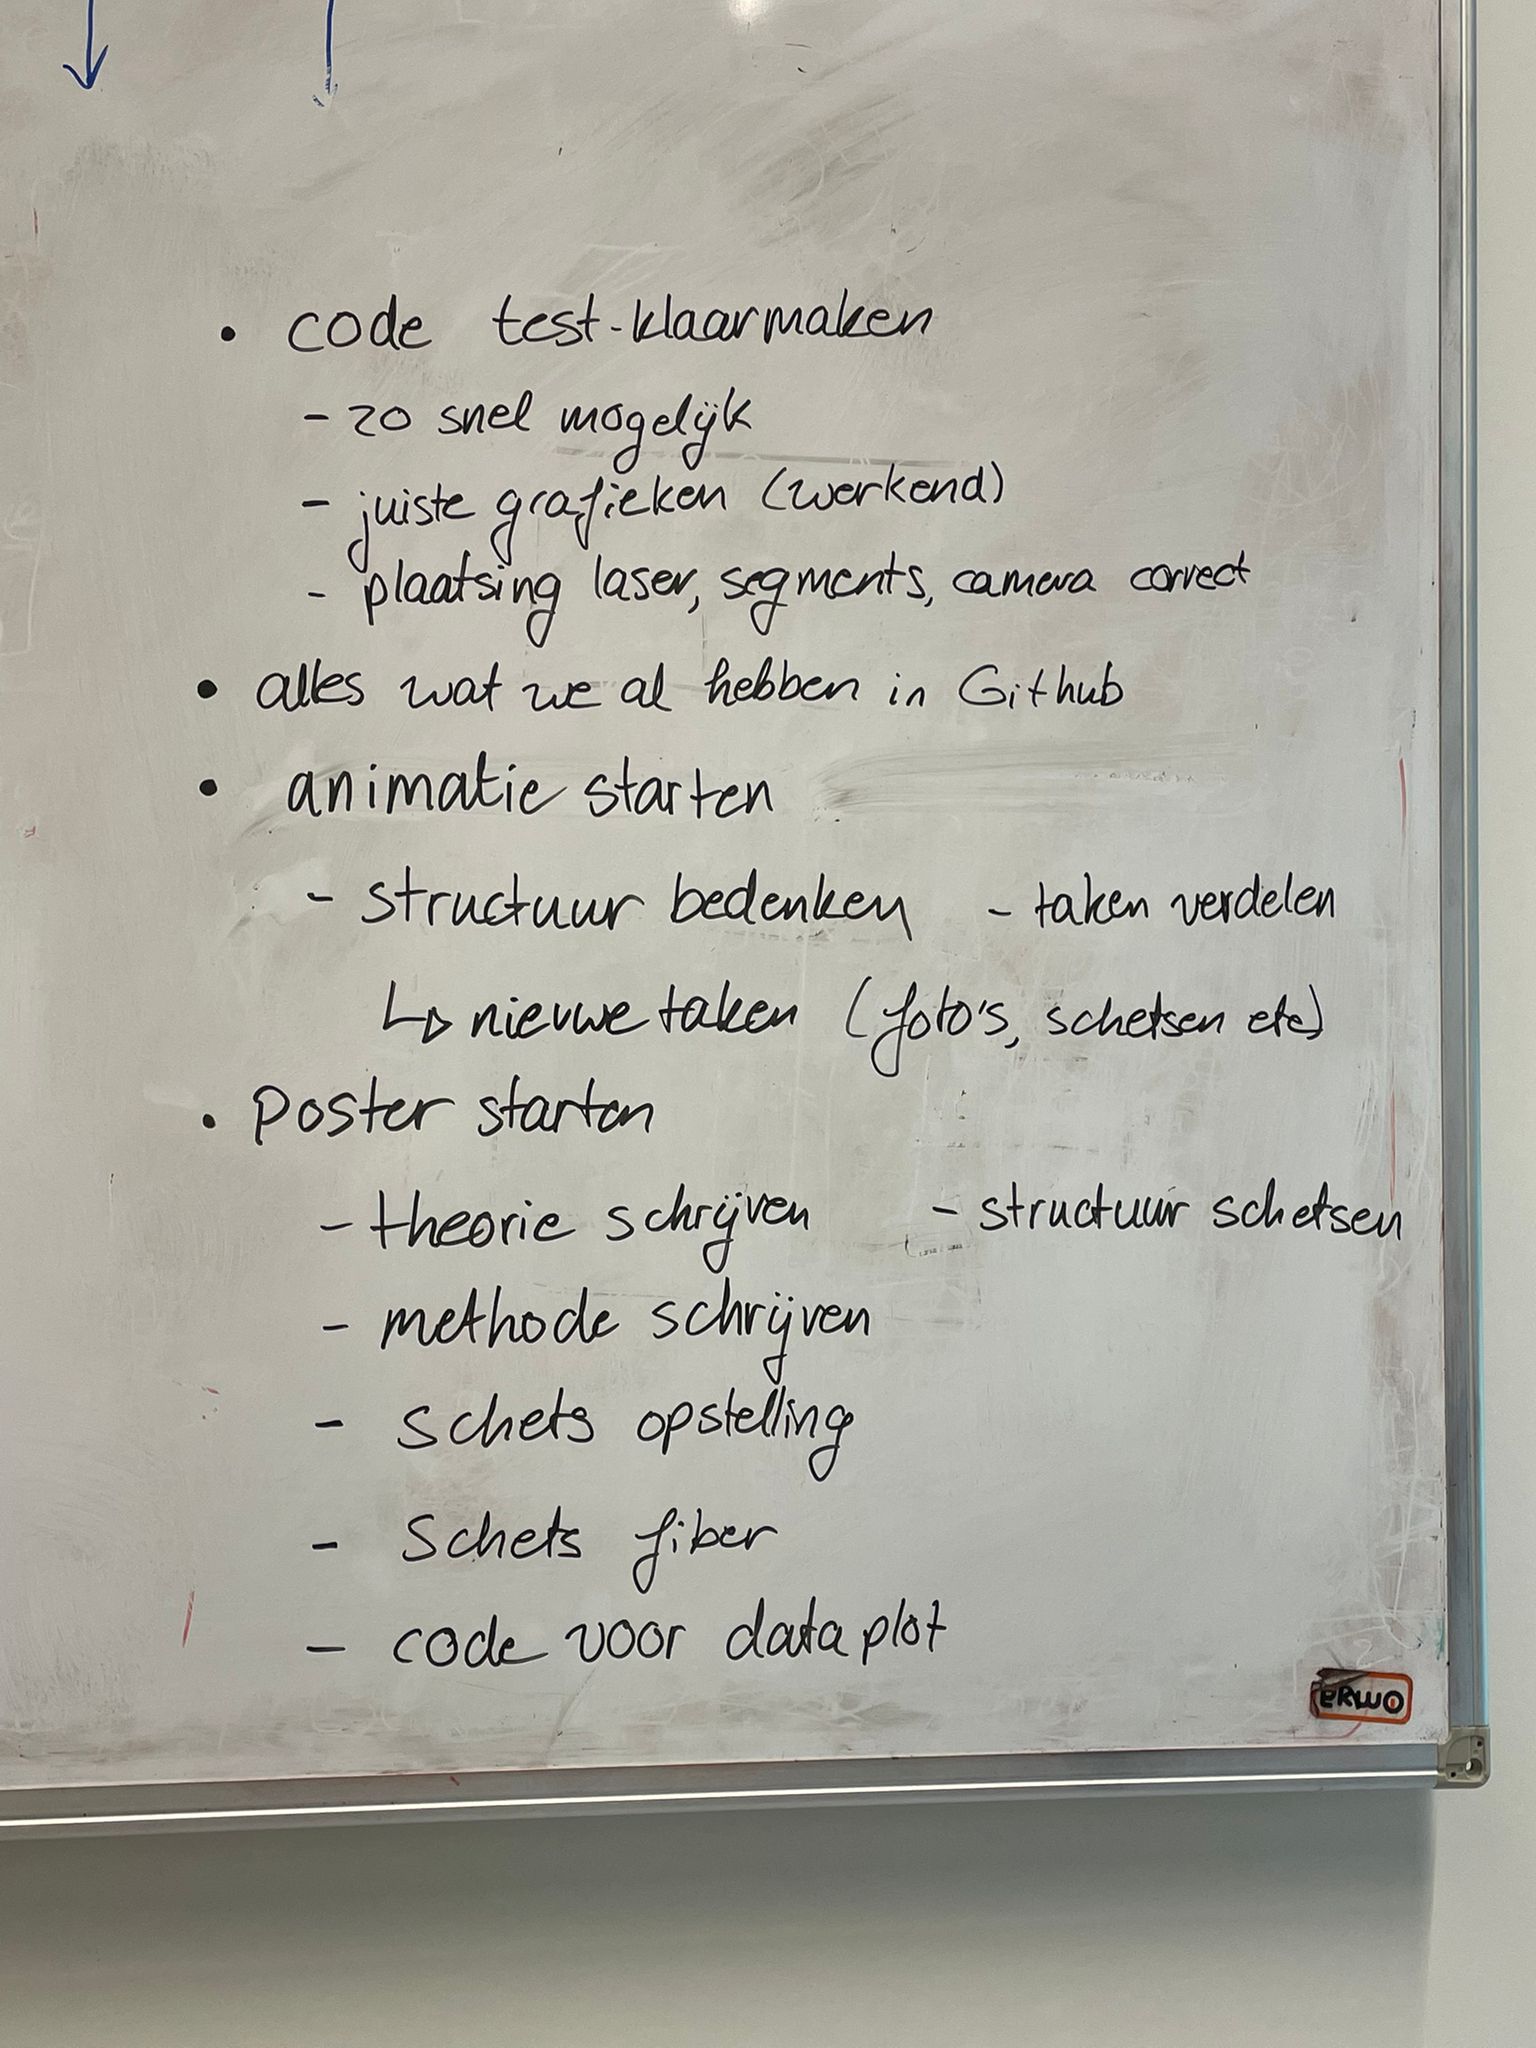 • code test-klaarmaken
- zo snel mogelijk
- juiste grafieken (werkend)
- plaatsing laser, segments, camera correct
• alles wat we al hebben in Github
• animatie starten
- structuur bedenken - taken verdelen
↳ nieuwe taken (foto's, schetsen etc)
• poster starten
- theorie schrijven - structuur schetsen
- methode schrijven
- schets opstelling
- schets fiber
- code voor dataplot